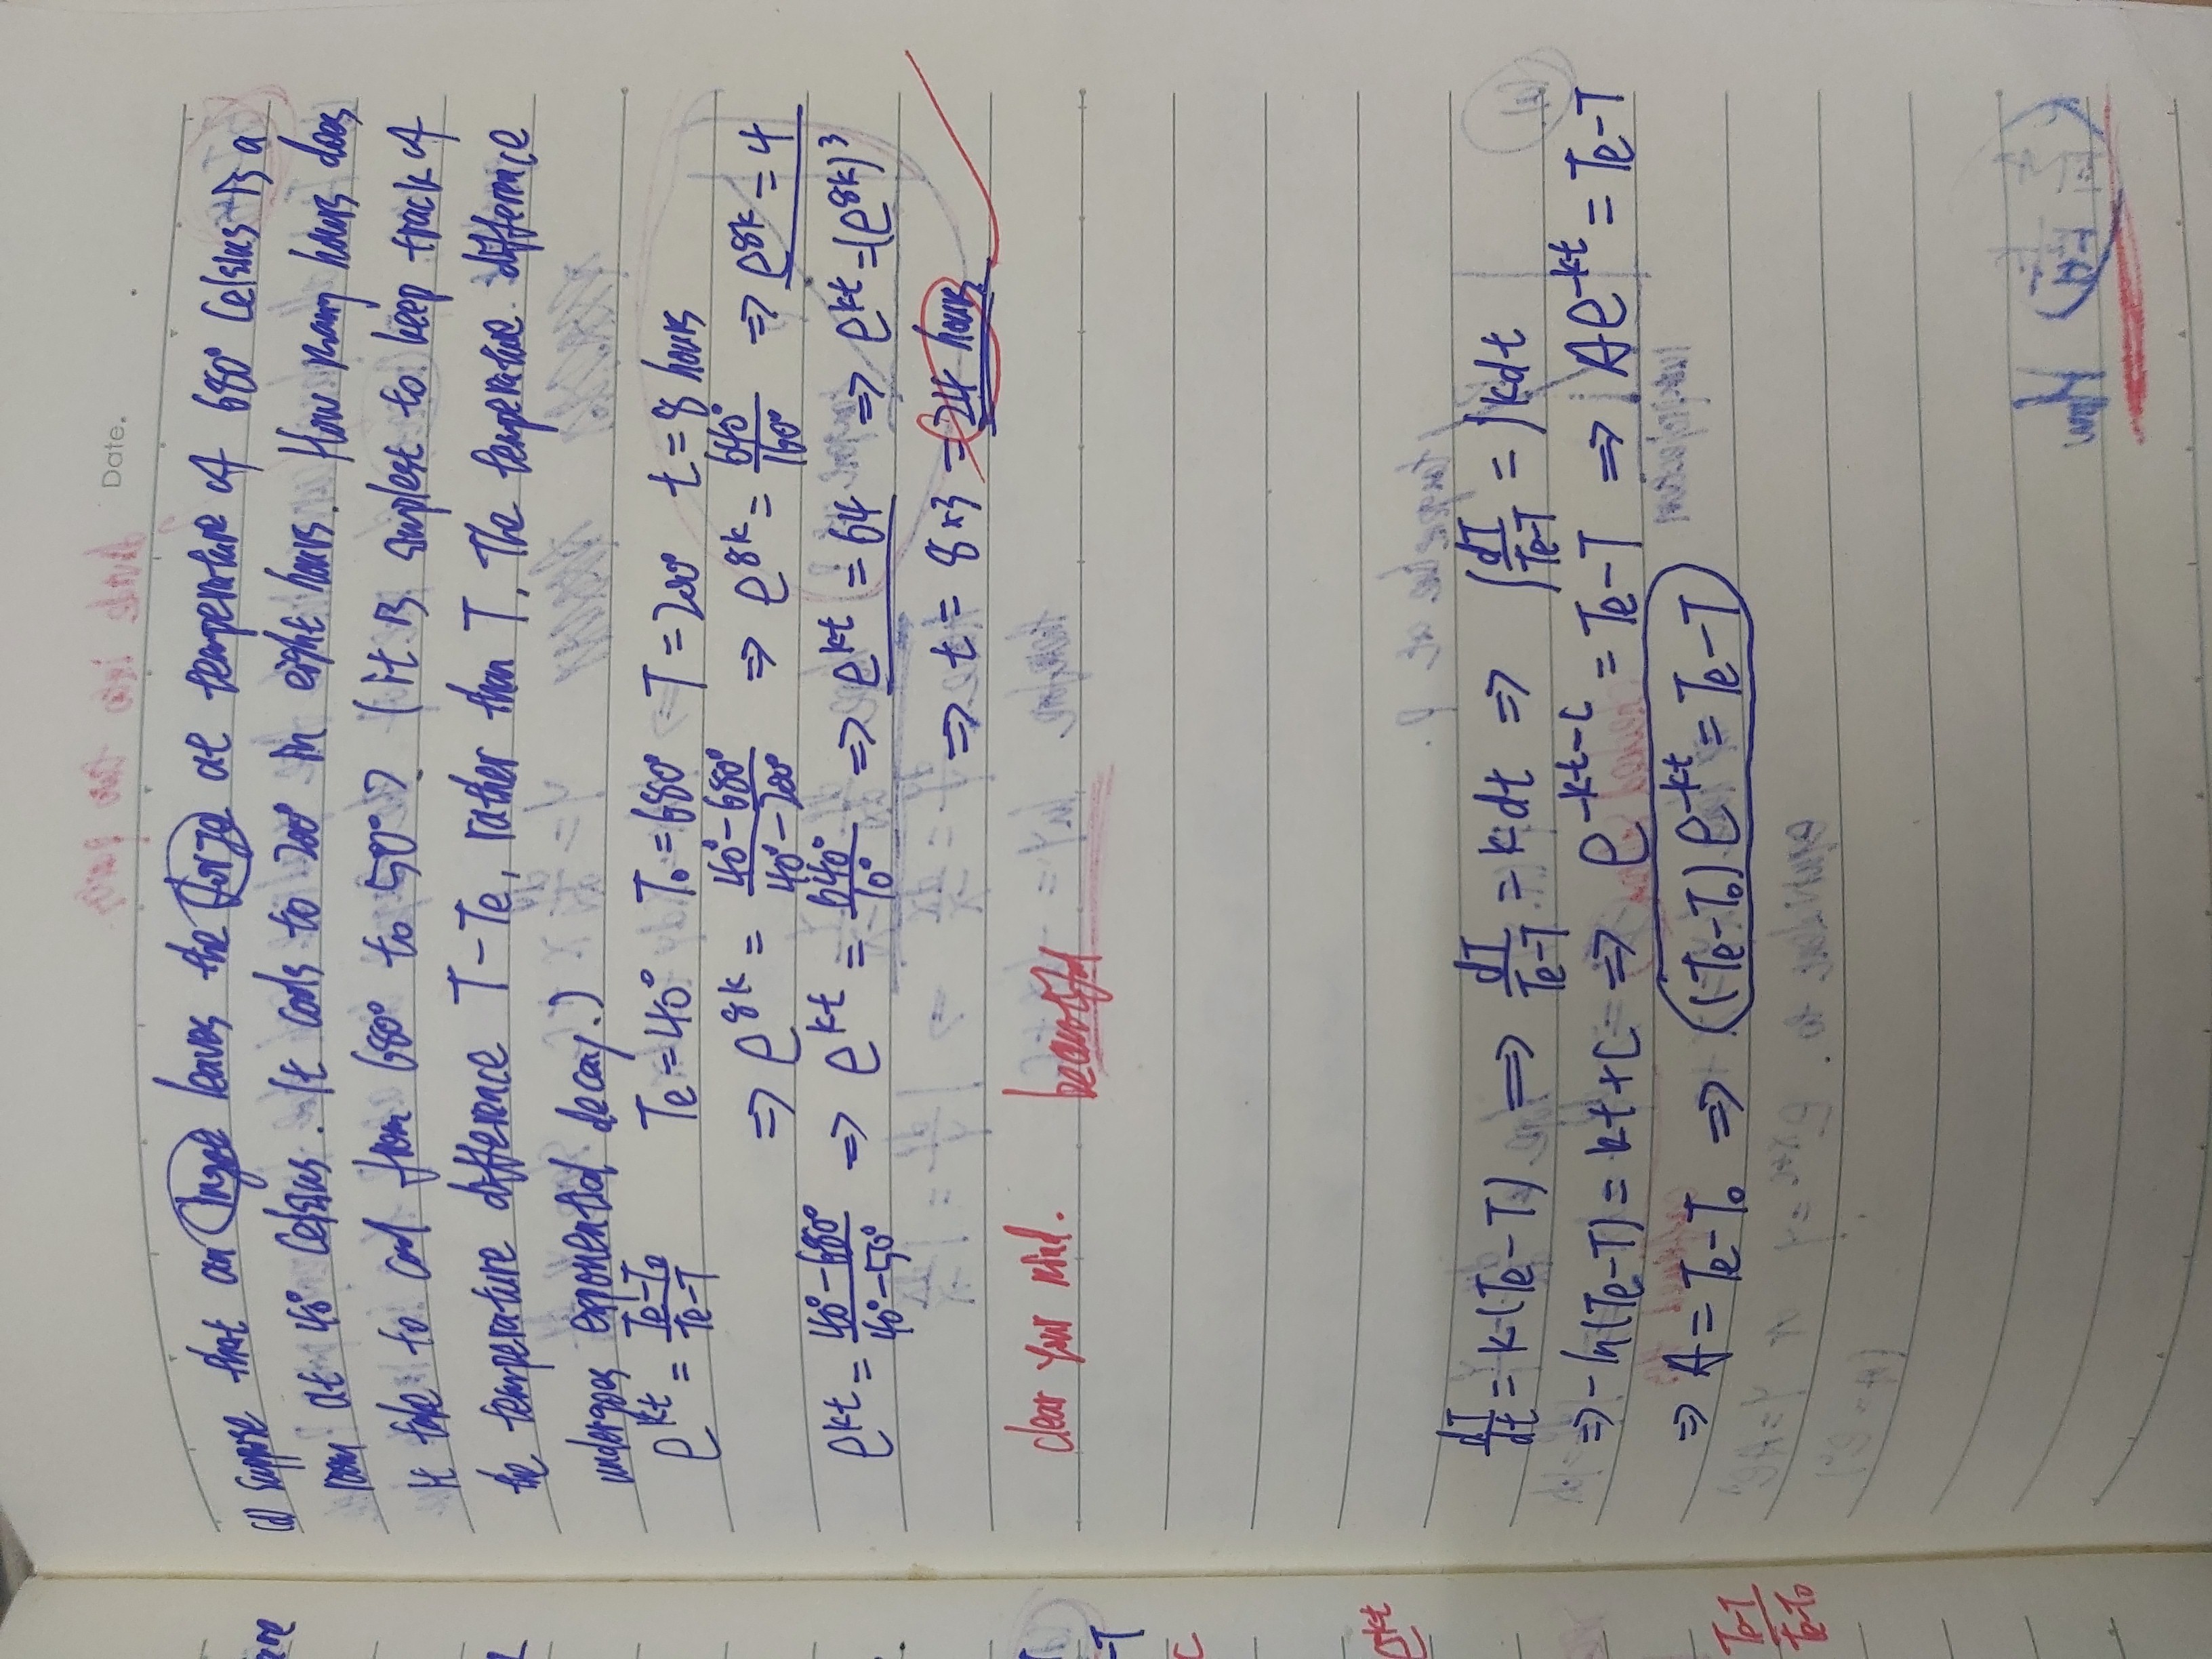 Date.
(d) Suppose that an Ingot leaves the forge at temperature of 680° Celsius in a
room at 40° Celsius. It cools to 200° in eight hours. How many hours does
it take to cool from 680° to 50°? (it is simplest to keep track of
the temperature difference T-Te, rather than T. The temperature difference
undergoes exponential decay.)
e^kt = (Te-T0)/(Te-T) Te=40° T0=680° T=200° t=8 hours
⇒ e^8k = (40°-680°)/(40°-200°) ⇒ e^8k = 640°/160° ⇒ e^8k = 4
e^kt = (40°-680°)/(40°-50°) ⇒ e^kt = 640°/10° ⇒ e^kt = 64 ⇒ e^kt = (e^8k)^3
⇒ t = 8×3 = 24 hours
clear your mind. beautiful
dT/dt = k(Te-T) ⇒ dT/(Te-T) = k dt ⇒ ∫dT/(Te-T) = ∫kdt
⇒ -ln(Te-T) = kt+C ⇒ e^-kt-C = Te-T ⇒ Ae^-kt = Te-T
⇒ A = Te-T0 ⇒ (Te-T0)e^-kt = Te-T